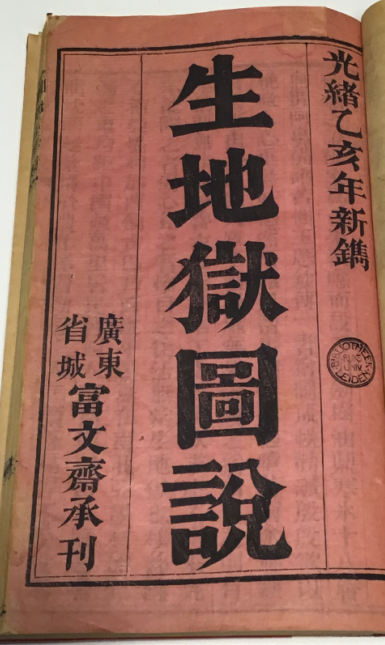 光緒乙亥年新鐫
生地獄圖說
廣東省城富文齋承刊
BIBLIOTHEEK
RIJKS
UNIV.
LEIDEN